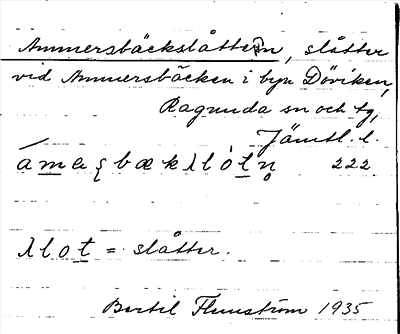 Ammersbäckslåtten, slåtter
vid Ammersbäcken i byn Döviken,
Ragunda sn och tg,
Jämtl. l.
222.
= slåtter.
Bertil Flemström 1935